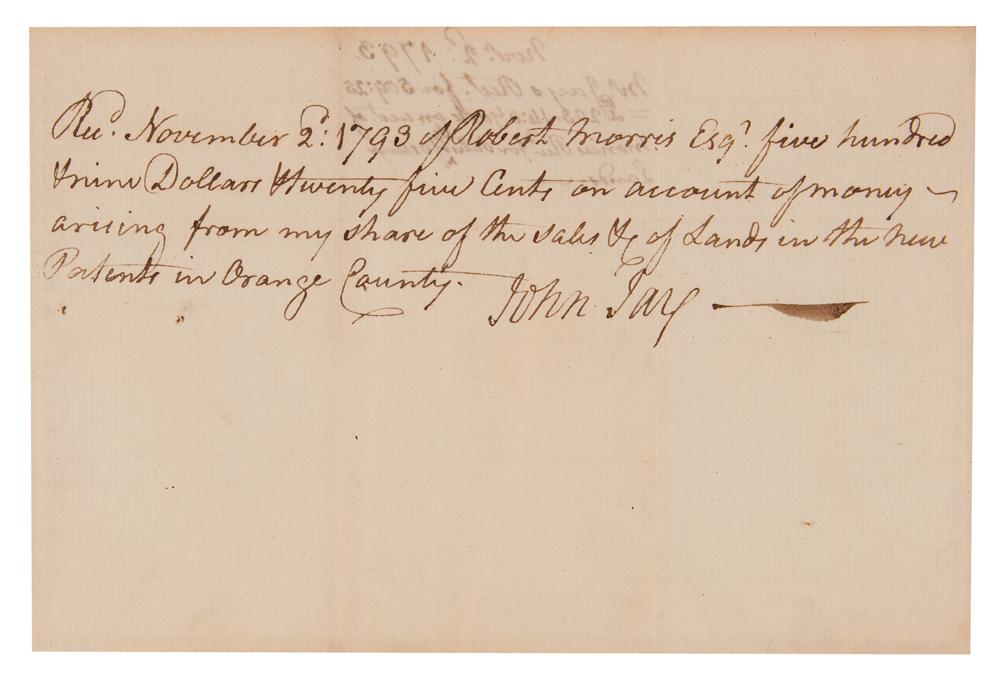 Recd. November 2d: 1793 of Robert Morris Esqr. five hundred
& nine Dollars & twenty five Cents on account of money —
arising from my share of the sales &c of Lands in the new
Patents in Orange County.
John Jay —
Novr. 2d. 1793
Mr. Jay's Rect. for 509:25